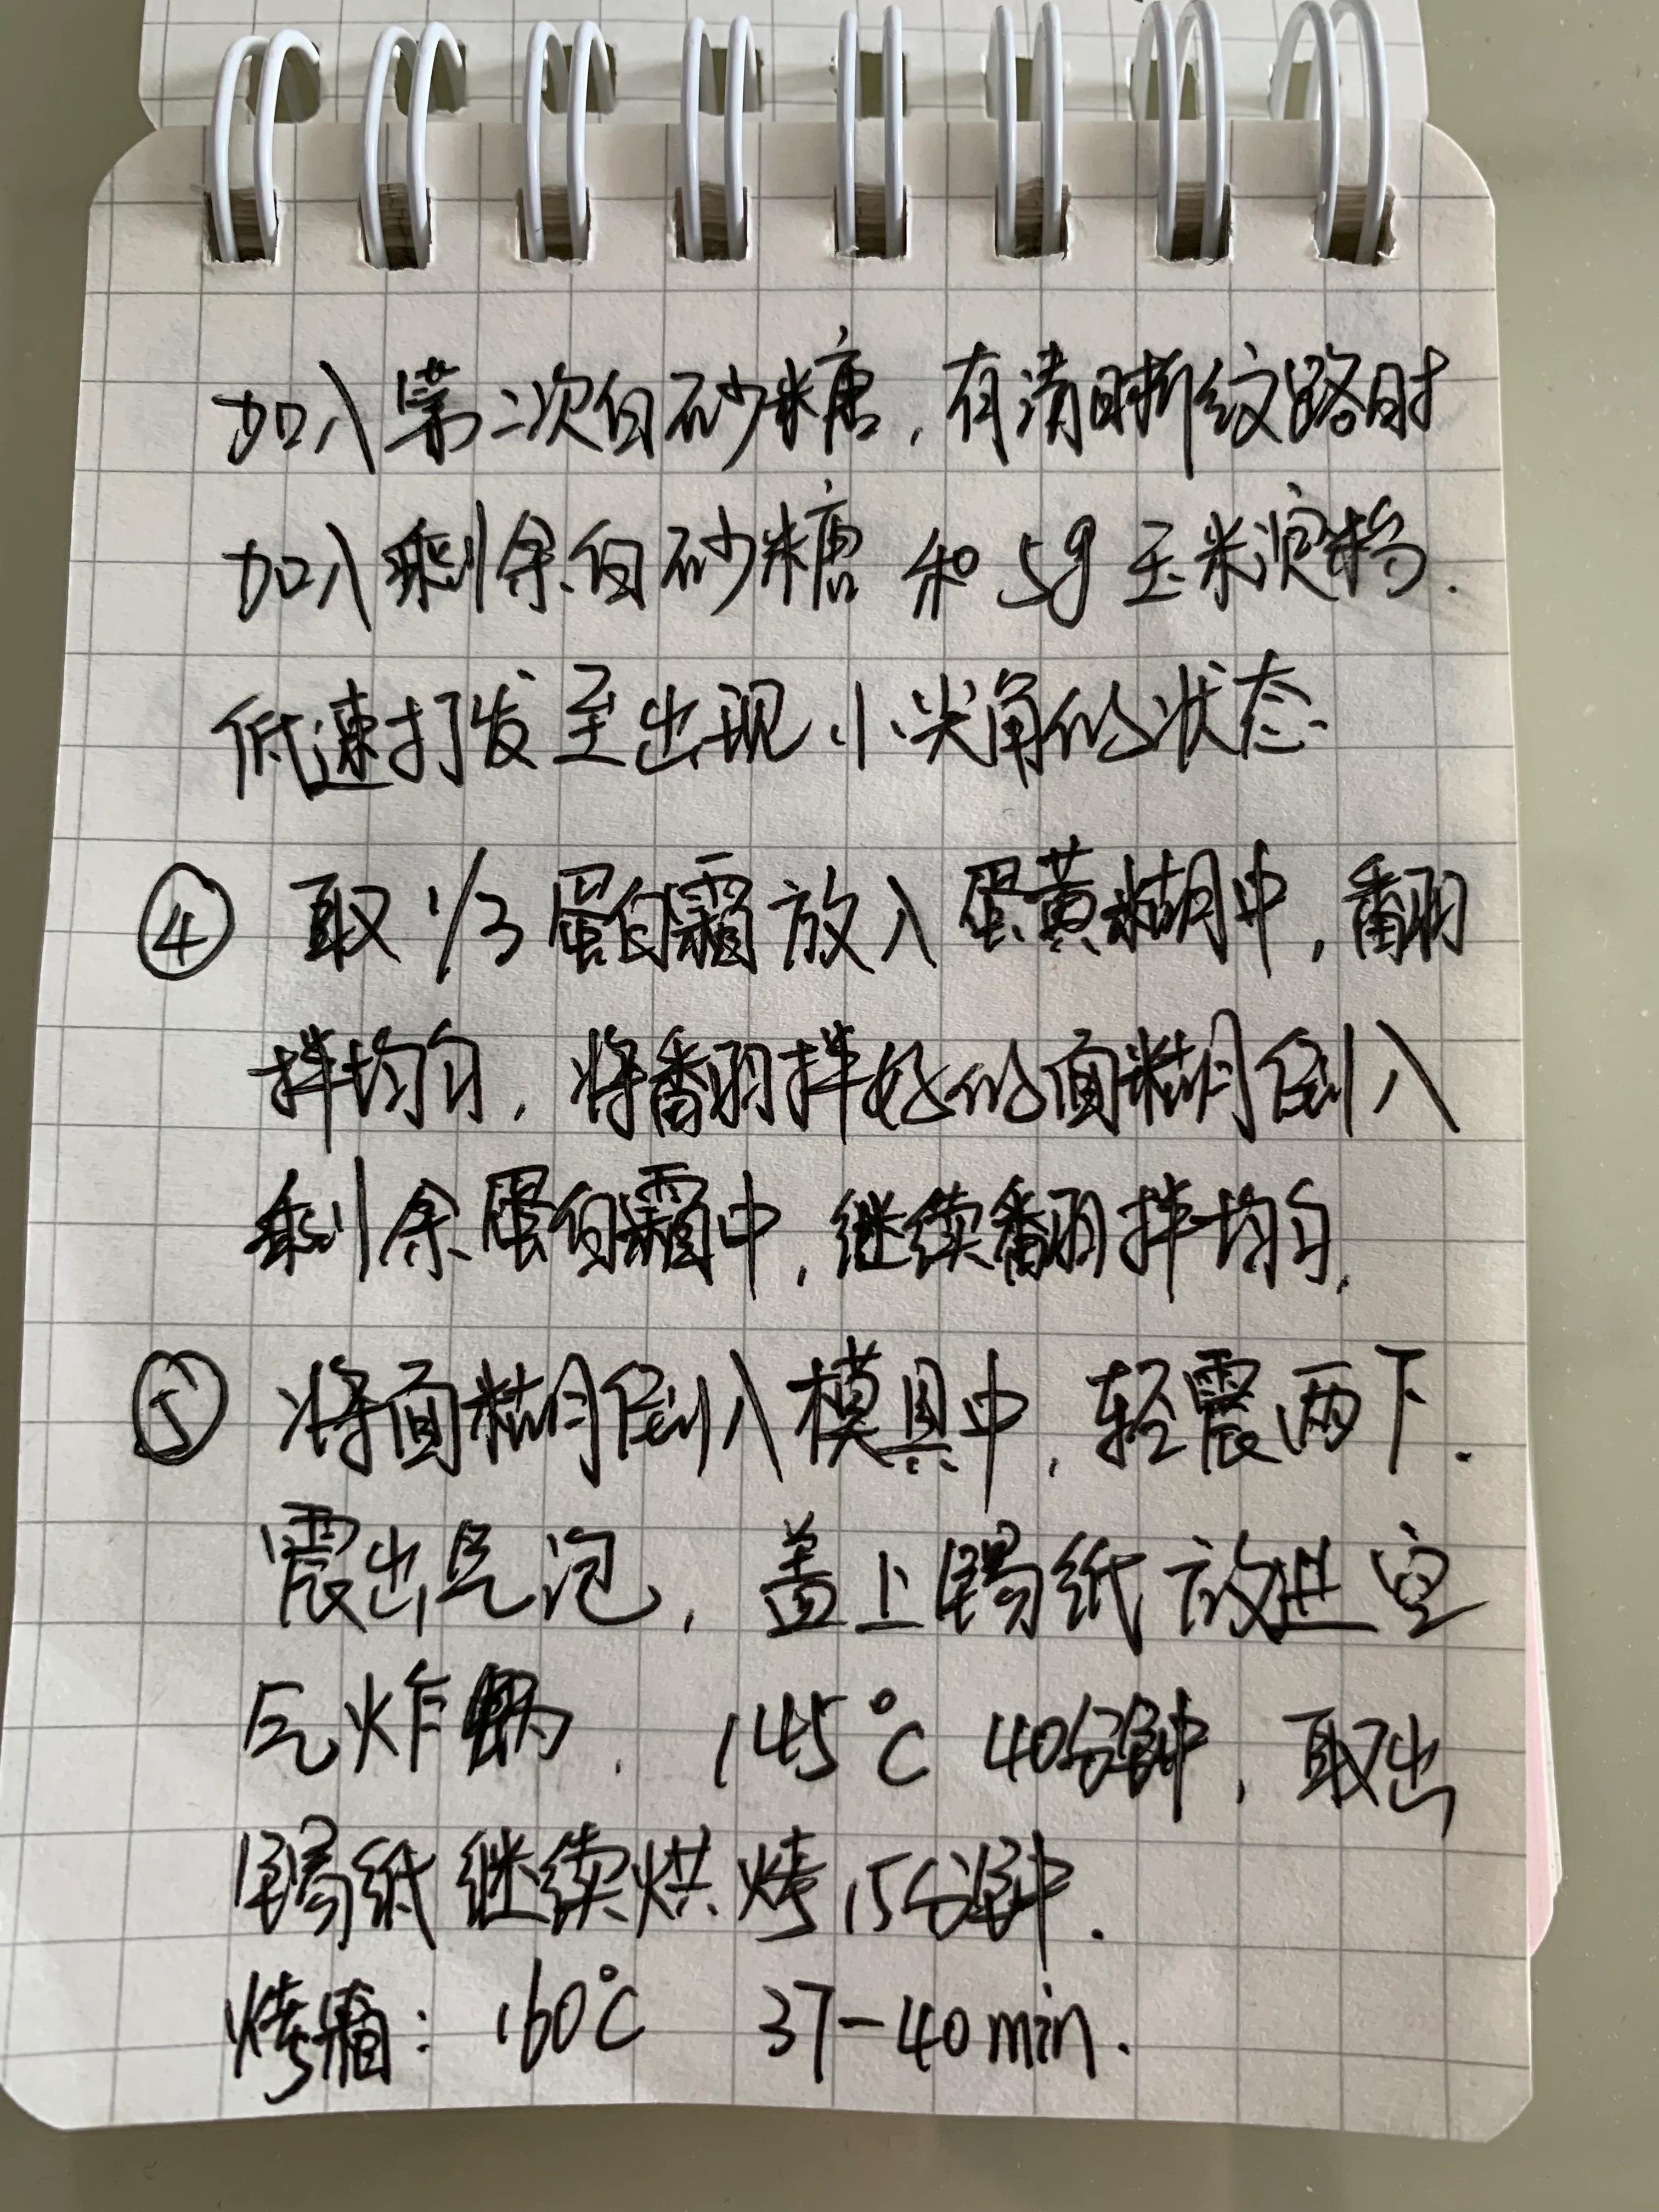 加入第二次白砂糖,有清晰纹路时
加入剩余白砂糖 和 5g 玉米淀粉.
低速打发至出现小尖角的状态.
④ 取 1/3 蛋白霜放入蛋黄糊中,翻
拌均匀,将翻拌好的面糊倒入
剩余蛋白霜中,继续翻拌均匀,
⑤ 将面糊倒入模具中,轻震两下.
震出气泡,盖上锡纸放进空
气炸锅. 145℃ 40分钟,取出
锡纸继续烘烤15分钟.
烤箱:160℃ 37-40min.